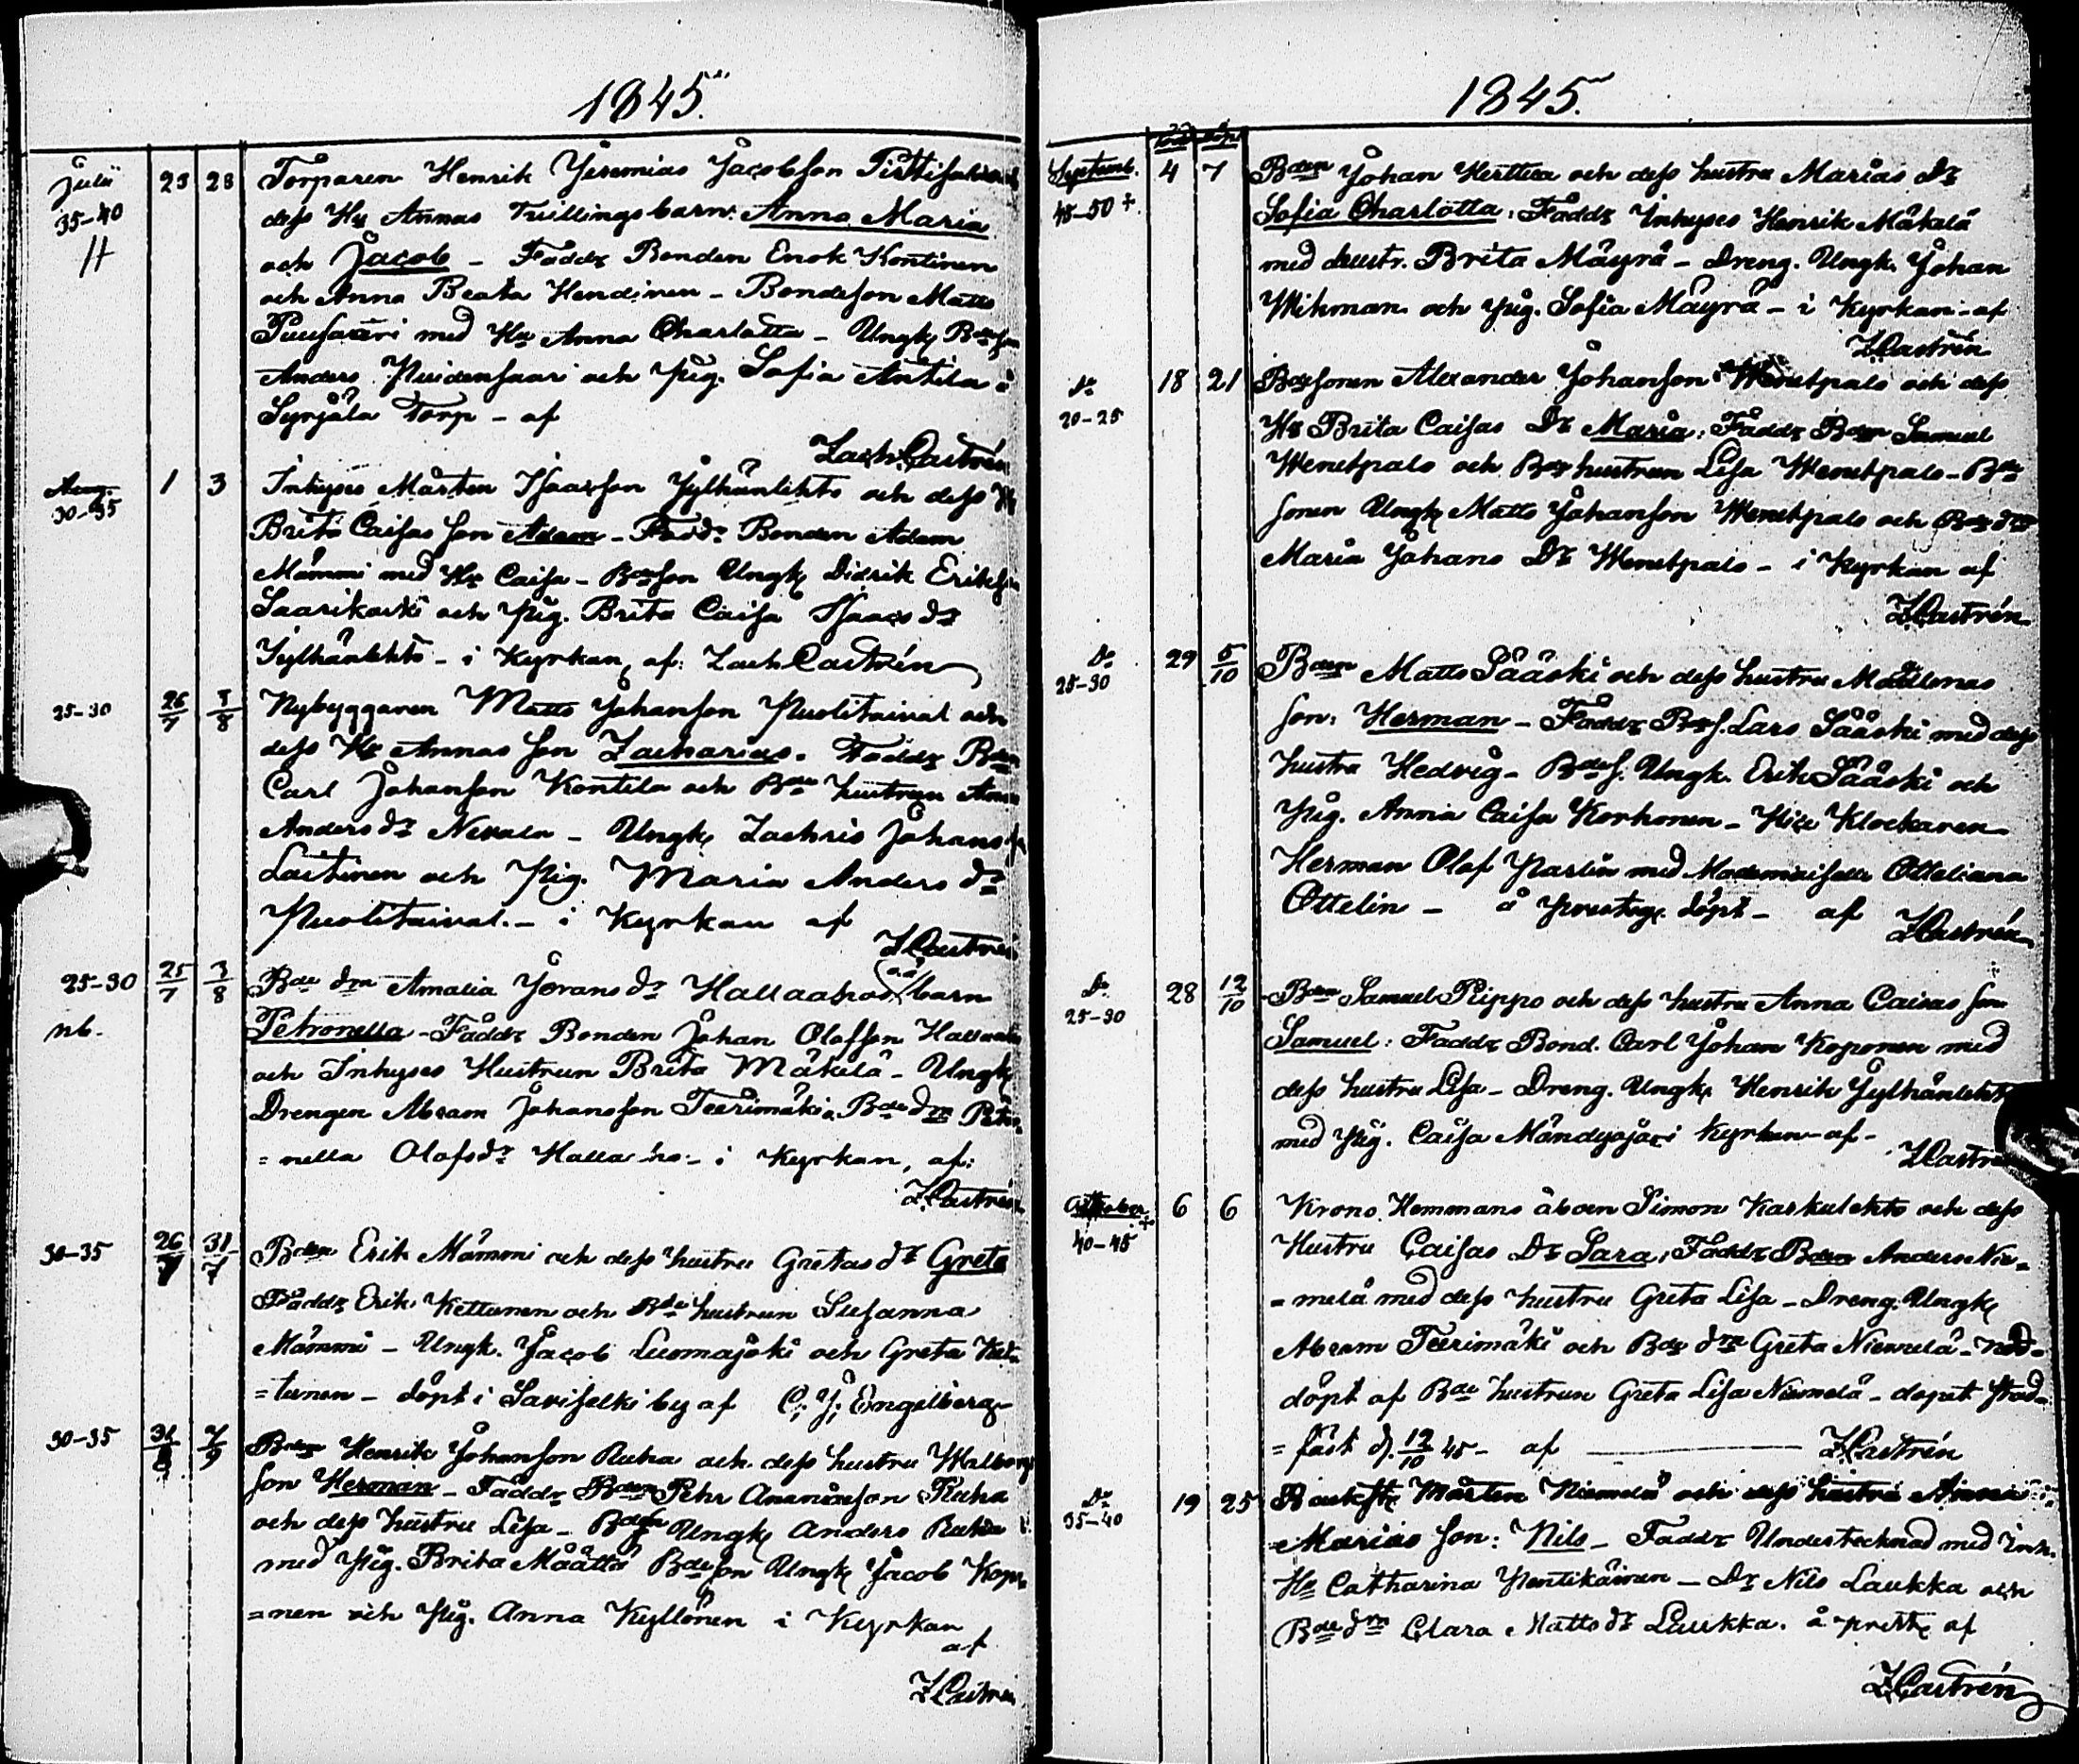 1845.
Julii 23 28 Torparen Henrik Jeremias Jacobsson
35-40 dess Hu Annas Tvillingsbarn: Anna Maria
och Jacob - Faddr Bonden Enok Kontinen
och Anna Beata Hendinen - Bondeson Matts
med Hu Anna Charlotta - Ungk
Anders och Pig. Sofia Antila å
Syrjälä Torp - af
Zach. Castrén
Aug. 1 3 Inhyses Mårten Isacsson Jylhänlehto och dess
30-35 Brita Caisas son Adam - Fadd: Bonden Adam
Mämmi med Hu Caisa - Bdeson Ungk Didrik
Saarikoski och Pig. Brita Caisa Isaacs dr
Jylhänlehto - i Kyrkan, af: Zach Castrén
25-30 26/7 3/8 Nybyggaren Matts Johansson Puolitaival och
dess Hu Annas son Zacharias. Faddr Bden
Carl Johansson Kontila och Bde hustrun
Anders dr Nevala - Ungk Zachris Johans
Laitinen och Pig. Maria Anders dr
Puolitaival. - i Kyrkan af
Z Castrén
25-30 25/7 3/8 Bde dm Amalia Jörans dr barn
nb. Petronella - Faddr Bonden Johan Olofsson
och Inhyses Hustrun Brita Mäkelä - Ungk
Drengen Abram Johansson Teerimäki, Bde dm Petro
= nella Olofsdr - i Kyrkan, af:
Z Castrén
30-35 26/7 31/7 Bden Erik Mämmi och dess hustru Gretas dr Greta
Faddr Erik Kettunen och Bde hustrun Susanna
Mämmi - Ungk. Jacob Luomajoki och Greta Ket
= tunen - döpt i Saviselki by af C. J. Engelberg
30-35 31/8 7/9 Bden Henrik Johansson Ruha och dess hustru Walborgs
son Herman - Faddr Bden Pehr Ruha
och dess hustru Lisa - Bdes Ungk Anders Ruha
med Pig. Brita Määttä Bdeson Ungk Jacob Kopo
= nen och Pig. Anna Kyllönen i Kyrkan
af
Z Castrén
1845.
född döpt
Septemb. 4 7 Bden Johan Herttua och dess hustru Marias Dr
45-50 + Sofia Charlotta: Faddr Inhyses Henrik Mäkelä
med hustr. Brita Mäyrä - Dreng. Ungk. Johan
Wihman och Pig. Sofia Mäyrä - i Kyrkan - af
Z Castrén
Do 18 21 Bdesonen Alexander Johansson Wenetpalo och dess
20-25 Hu Brita Caisas Dr Maria: Faddr Bden Samuel
Wenetpalo och Bdehustrun Lisa Wenetpalo - Bde
sonen Ungk Matts Johansson Wenetpalo och Bde
Maria Johans Dr Wenetpalo - i Kyrkan af
Z Castrén.
Do 29 5/10 Bden Matts Sääski och dess hustru
25-30 son: Herman - Faddr Bdes. Lars Sääski med dess
hustru Hedvig - Bdes. Ungk. Erik Sääski och
Pig. Anna Caisa Korhonen - Klockaren
Herman Olof med Mademoiselle Otteliana
Ottelin - å döpt - af Z Castrén
Do 28 12/10 Bden Samuel Piippo och dess hustru Anna Caisas son
25-30 Samuel: Faddr Bond. Carl Johan Koponen med
dess hustru Lisa - Dreng. Ungk Henrik Jylhänlehto
med Pig. Caisa i Kyrkan - af -
Z Castrén
October 6 6 Krono Hemmans åboen Simon Karkulehto och dess
40-45 Hustru Caisas Dr Sara, Faddr Bden Anders Nie=
= melä med dess hustru Greta Lisa - Dreng. Ungk
Abram Teerimäki och Bde dm Greta Niemelä - nöd=
döpt af Bde hustrun Greta Lisa Niemelä - dopet stad=
= fäst d. 12/10 45 - af Z Castrén
Do 19 25 Mårten Niemelä och dess hustru Anna
35-40 = Marias son: Nils - Faddr Undertecknad med Inh.
Hu Catharina Pentikäinen - Dr Nils Laukka och
Bde dm Clara Matts dr Laukka. å prestg af
Z Castrén